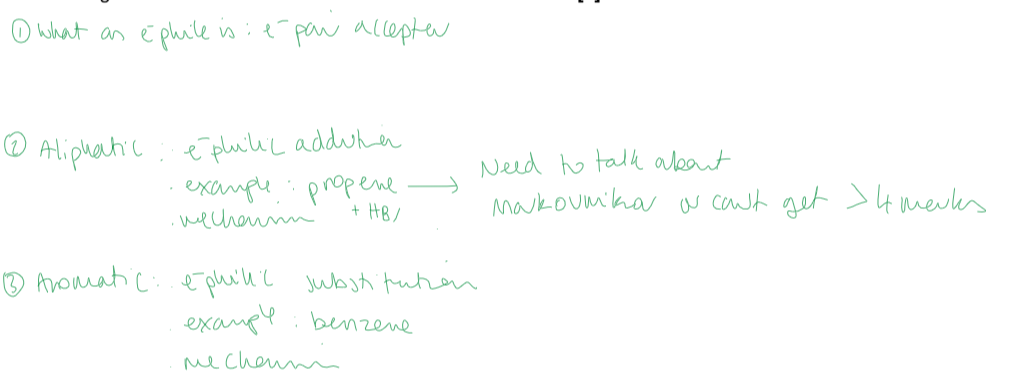 ① What an e⁻phile is : e⁻ pair accepter
② Aliphatic : e⁻philic addition
. example : propene ⟶ Need to talk about
+ HBr Markovnikov or can't get >4 marks
. mechanism
③ Aromatic : e⁻philic substitution
. example : benzene
. mechanism